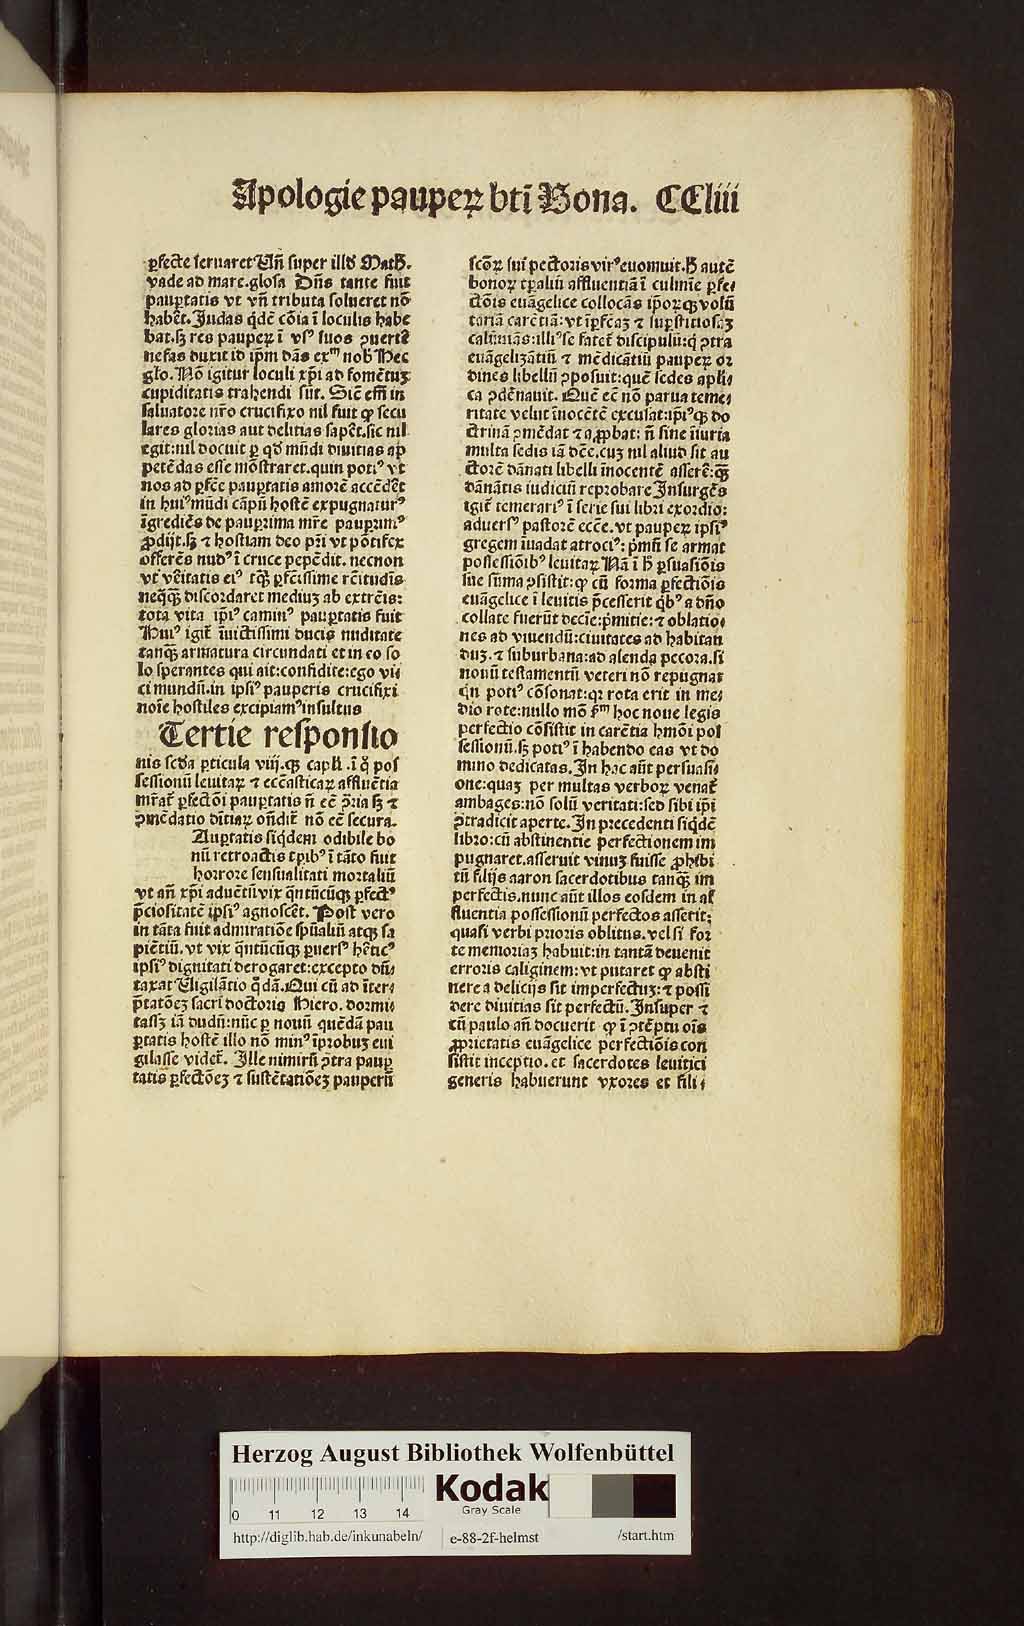 Apologie pauperꝝ btī Bona. CCliii
ꝑfecte seruaret Uñ super illđ Math.
vade ad mare.glosa Dñs tante fuit
pauꝑtatis vt vñ tributa solueret nō
habēt. Judas qdē cōia ī loculis habe
bat.ꝫ res pauperꝝ ī vsꝰ suos ꝯuertē
nefas duxit id ip̄m dās exᵐ nob̄ Hec
glo. Nō igitur loculi xp̄i ad fomētuꝫ
cupiditatis trahendi sūt. Sicē eīm in
saluatore nr̄o crucifixo nil fuit ꝙ secu
lares glorias aut delitias sapēt.sic nil
egit:nil docuit ꝑ qd mūdi diuitias ap
petēdas esse mōstraret.quin potiꝰ vt
nos ad ꝑfēe pauꝑtatis amorē accēdēt
in huiꝰ mūdi cāpū hostē expugnaturꝰ
īgrediēs de pauꝑrima mr̄e pauꝑrimꝰ
ꝓdijt.ꝫ ⁊ hostiam deo pr̄i vt pōtifex
offerēs nudꝰ ī cruce pepēdit. necnon
vt vēitatis eiꝰ tāꝙ ꝑfcīssime rēitudīs
neqꝙ discordaret mediuꝫ ab extrēis:
tota vita ip̄iꝰ caminꝰ pauꝑtatis fuit
Huiꝰ igit̄ īuictissimi ducis nuditate
tanꝙ armatura circundati et in eo so
lo sperantes qui ait:confidite:ego vi⸗
ci mundū.in ipsiꝰ pauperis crucifixi
noīe hostiles excipiamꝰ insultus
Tertie responsio
nis scđa ꝑticula viij.qꝫ capl̄i .ī q̊ pos
sessionū leuitaꝝ ⁊ ecc̄asticaꝝ affluētia
mr̄at̄ ꝑfectōi pauꝑtatis ñ eē ꝯ̄ria ꝫ ⁊
ꝯmēdatio dītiaꝝ oñdit̄ nō eē secura.
Auꝑtatis siqdem odibile bo
nū retroactis tꝑibꝰ ī tāto fuit
horrore sensualitati mortaliū
vt añ xp̄i aduētū vix q̄ntūcūqꝫ ꝑfectꝰ
p̄ciositatē ipsiꝰ agnoscēt. Post vero
in tāta fuit admiratiōe spūaliū atqꝫ sa
piētiū. vt vix q̄ntūcūqꝫ ꝑuersꝰ hēticꝰ
ipsiꝰ dignitati derogaret:excepto dū⸗
taxat Uigilātio q̄dā.Qui cū ad īter⸗
p̄tatōeꝫ sacri doctoris Hiero. dormi⸗
tassꝫ iā dudū:nūc ꝑ nouū quēdā pau
ꝑtatis hostē illo nō minꝰ īprobuꝫ eui
gilasse videt̄. Ille nimirū ꝯtra pauꝑ
tatis ꝑfectōeꝫ ⁊ sustētatiōeꝫ pauperū
scōꝝ sui pectoris virꝰ euomuit.H̄ autē
bonoꝝ tꝑaliū affluentiā ī culmīe ꝑfe⸗
ctōis euāgelice collocās ip̄oꝝqꝫ volū
tariā carētiā:vt īꝑfcāꝫ ⁊ suꝑstitiosaꝫ
calūniās:illiꝰ se fatet̄ discipulū:q̇ ꝯtra
euāgelizātiū ⁊ mēdicātiū pauperꝝ or
dines libellū ꝯposuit:quē sedes apl̄i⸗
ca ꝯdēnauit. Quē eē nō parua teme⸗
ritate velut īnocētē excusat:ip̄iꝰqꝫ do
ctrinā ꝯmēdat ⁊ aꝓbat: ñ sine iīuria
multa sedis iā dc̄e.cuꝫ nil aliud sit au
ctorē dānati libelli īnocentē asserē:ꝙ
dānātis iudiciū reprobare Insurgēs
igit̄ temerariꝰ ī serie sui libri exordio:
aduersꝰ pastorē ecc̄e.vt pauperꝝ ipsiꝰ
gregem īuadat atrociꝰ: p̄mū se armat
possessiōibꝰ leuitaꝝ Nā ī h̄ ꝑsuasiōis
sue sūma ꝯsistit:ꝙ cū forma ꝑfectiōis
euāgelice ī leuitis p̄cesserit qbꝰ a dño
collate fuerūt decie:p̄mitie:⁊ oblatio⸗
nes ad viuendū:ciuitates ad habitan
duꝫ.⁊ suburbana:ad alenda pecora.si
nouū testamentū veteri nō repugnat
qn poti⁹ cōsonat:qꝛ rota erit in me⸗
dio rote:nullo mō ẜm hoc noue legis
perfectio cōsistit in carētia hmōi pos
sessionū.ꝫ potiꝰ ī habendo eas vt do
mino dedicatas. In hac aūt persuasi⸗
one:quaꝫ per multas verboꝝ venat̄
ambages:nō solū veritati:sed sibi ip̄i
ꝯtradicit aperte. In precedenti siqdē
libro:cū abstinentie perfectionem im
pugnaret.asseruit vinuꝫ fuisse ꝓhibi
tū filijs aaron sacerdotibus tanꝙ im
perfectis.nunc aūt illos eosdem in af
fluentia possessionū perfectos asserit:
quasi verbi prioris oblitus.vel si for
te memoriaꝫ habuit:in tantā deuenit
erroris caliginem:vt putaret ꝙ absti
nere a delicijs sit imperfectuꝫ:⁊ possi
dere diuitias sit perfectū. Insuper ⁊
cū paulo añ docuerit ꝙ ī ꝯtēptu oīs
ꝓprietatis euāgelice perfectiōis con
sistit inceptio.et sacerdotes leuitici
generis habuerunt vxores et fili⸗
Herzog August Bibliothek Wolfenbüttel
0 11 12 13 14
Kodak
Gray Scale
http://diglib.hab.de/inkunabeln/ e-88-2f-helmst /start.htm